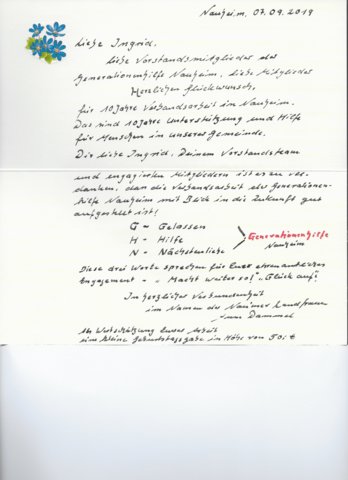 Nauheim, 07.09.2019
Liebe Ingrid,
liebe Vorstandsmitglieder der
Generationenhilfe Nauheim, liebe Mitglieder
Herzlichen Glückwunsch,
für 10 Jahre Verbandsarbeit in Nauheim.
Das sind 10 Jahre Unterstützung und Hilfe
für Menschen in unserer Gemeinde.
Dir liebe Ingrid, Deinem Vorstandsteam
und engagierten Mitgliedern ist es zu ver-
danken, dass die Verbandsarbeit der Generationen-
hilfe Nauheim mit Blick in die Zukunft gut
aufgestellt ist!
G = Gelassen
H = Hilfe
N = Nächstenliebe
Generationenhilfe
Nauheim
Diese drei Worte sprechen für Euer ehrenamtliches
Engagement - „Macht weiter so!" „Glück auf!"
In herzlicher Verbundenheit
im Namen der Naumer Landfrauen
Dammel
Als Wertschätzung Eurer Arbeit
eine kleine Geburtstagsgabe in Höhe von 50 €